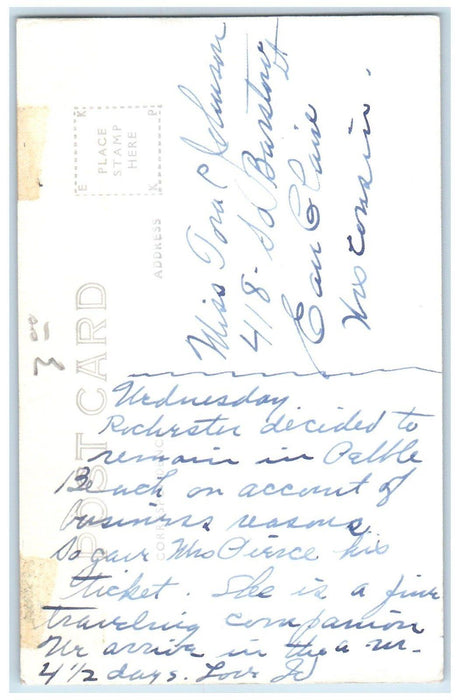 POST CARD
ADDRESS
PLACE
STAMP
HERE
3 00
Miss Tora C Johnson
418 - So Barstow St
Eau Claire
Wisconsin.
Wednesday
Rochester decided to
remain in Pebble
Beach on account of
business reasons
So gave Mrs Pierce his
ticket. She is a fine
traveling companion
We arrive in the a.m.
4 1/2 days. Love